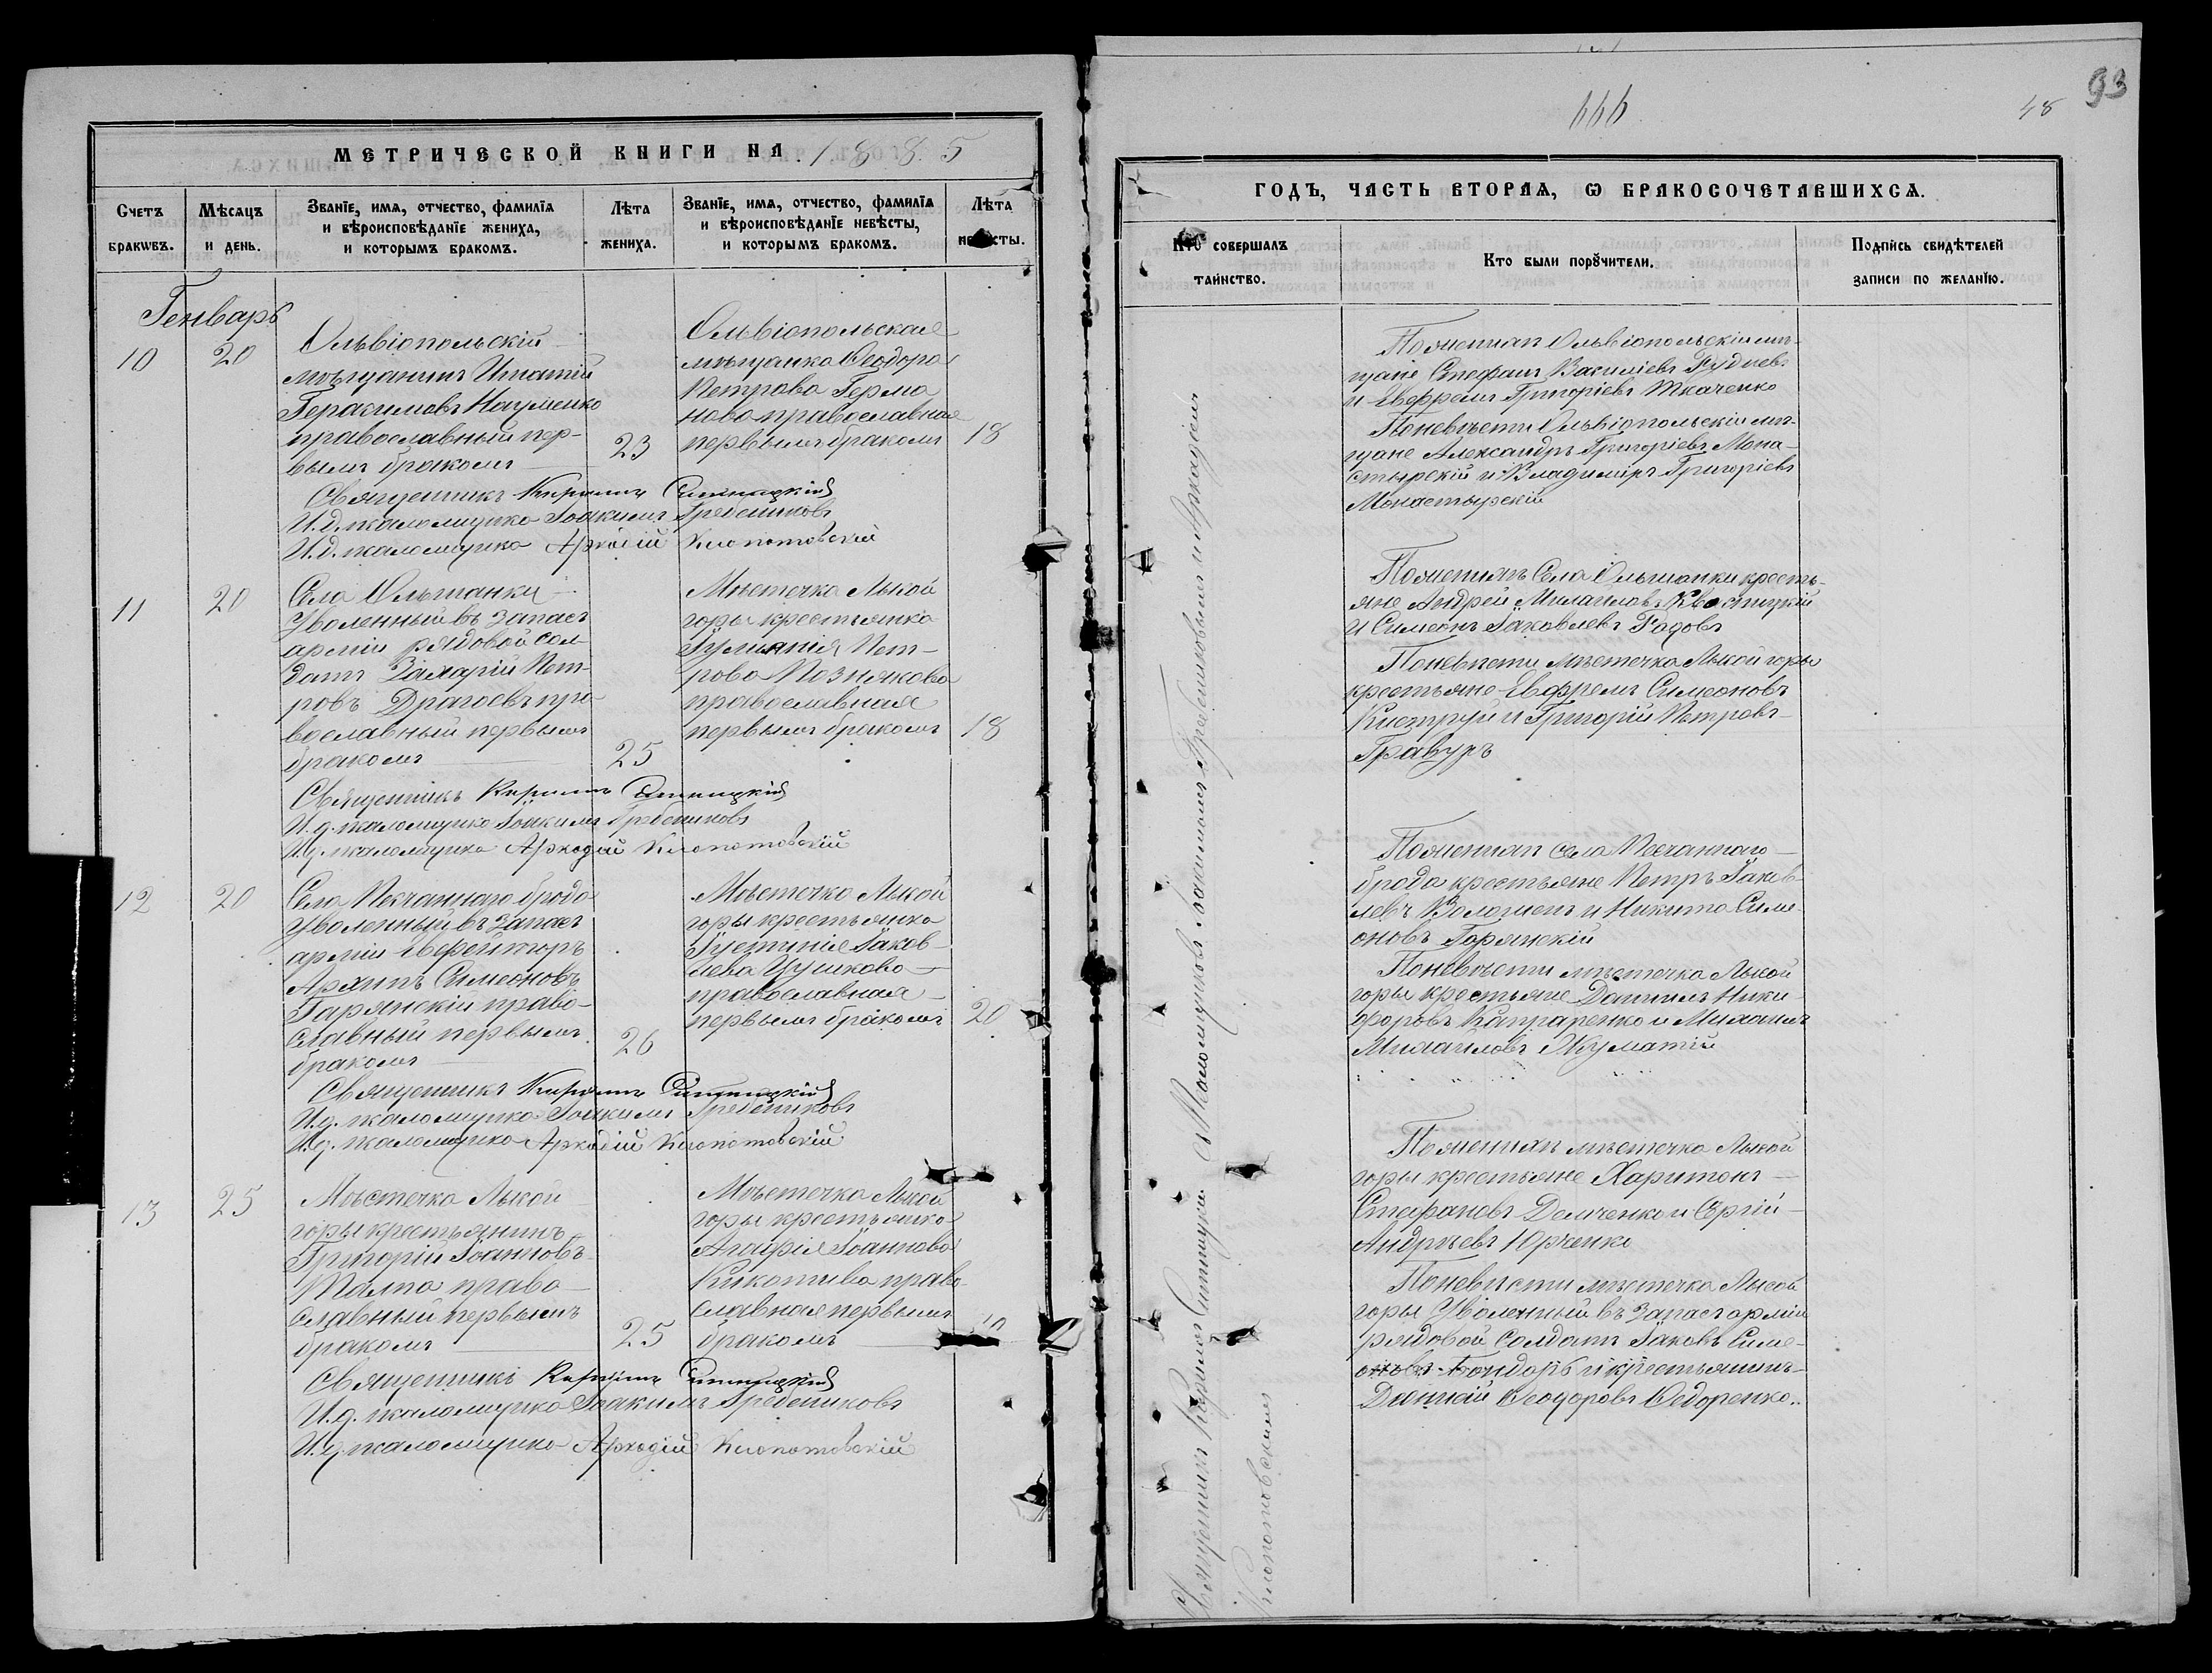 МЕТРИЧЕСКОЙ КНИГИ НА 1885
Счетъ браковъ.
Мѣсяцъ и день.
Званїе, имя, отчество, фамилїя
и вѣроисповѣданїе жениха,
и которымъ бракомъ.
Лѣта
жениха.
Званїе, имя, отчество, фамилїя
и вѣроисповѣданїе невѣсты,
и которымъ бракомъ.
Лѣта
невѣсты.
Генварь
10
20
Ольвіопольскій
мѣщанинъ Игнатій
Герасимовъ Науменко
православный пер-
вымъ бракомъ
23
Ольвіопольская
мѣщанка Ѳеодора
Петрова Герма
нова православная
первымъ бракомъ
18
Священникъ Кириллъ
И. д. псаломщика Іоакимъ Гребенниковъ
И. д. псаломщика Аркадій Клопотовскій
11
20
Села Ольшанки
Уволенный въ запасъ
арміи рядовой сол-
датъ Захарій Пет-
ровъ Драгоевъ пра-
вославный первымъ
бракомъ
25
Мѣстечка Лысой
горы крестьянка
Іуліанія Пет-
рова Познякова
православная
первымъ бракомъ
18
Священникъ Кириллъ
И. д. псаломщика Іоакимъ Гребенниковъ
И. д. псаломщика Аркадій Клопотовскій
12
20
Села Песчаннаго брода
Уволенный въ запасъ
арміи Ефрейторъ
Архипъ Симеоновъ
Гарянскій право-
славный первымъ
бракомъ
26
Мѣстечка Лысой
горы крестьянка
Іустинія Іаков-
лева
православная
первымъ бракомъ
20
Священникъ Кириллъ
И. д. псаломщика Іоакимъ Гребенниковъ
И. д. псаломщика Аркадій Клопотовскій
13
25
Мѣстечка Лысой
горы крестьянинъ
Григорій Іоанновъ
право-
славный первымъ
бракомъ
25
Мѣстечка Лысой
горы крестьянка
Агафія Іоаннова
право-
славная первымъ
бракомъ
Священникъ Кириллъ
И. д. псаломщика Іоакимъ Гребенниковъ
И. д. псаломщика Аркадій Клопотовскій
93
48
666
ГОДЪ, ЧАСТЬ ВТОРАЯ, Ѡ БРАКОСОЧЕТАВШИХСЯ.
Кто совершалъ
таинство.
Кто были порꙋчители.
Подпись свидѣтелей
записи по желанїю.
Священникъ Кириллъ псаломщиковъ Іоакимомъ Гребенниковымъ и Аркадіемъ
Клопотовскимъ
По женихѣ Ольвіопольскіи мѣ-
щане Стефанъ Василіевъ Рудневъ
и Евфремъ Григоріевъ Ткаченко
По невѣсти Ольвіопольскіи мѣ-
щане Александръ Григоріевъ Мона-
стырскій и Владиміръ Григоріевъ
Монастырскій
По женихѣ Села Ольшанки кресть-
яне Андрей
и Симеонъ Іаковлевъ Радовъ
По невѣсти мѣстечка Лысой горы
крестьяне Евфремъ Симеоновъ
и Григорій Петровъ
По женихѣ села Песчаннаго
брода крестьяне Петръ Іаков-
левъ и Никита Симе-
оновъ Горянскій
По невѣсти мѣстечка Лысой
горы крестьяне Даніилъ Ники-
форовъ и Михаилъ
Михайловъ
По женихѣ мѣстечка Лысой
горы крестьяне Харитонъ
Стефановъ Демченко и Сергій
Андрѣевъ Юрченко
По невѣсти мѣстечка Лысой
горы Уволенный въ запасъ арміи
рядовой солдатъ Іаковъ Симе-
оновъ Бондарь и крестьянинъ
Ѳеодоровъ Ѳедоренко